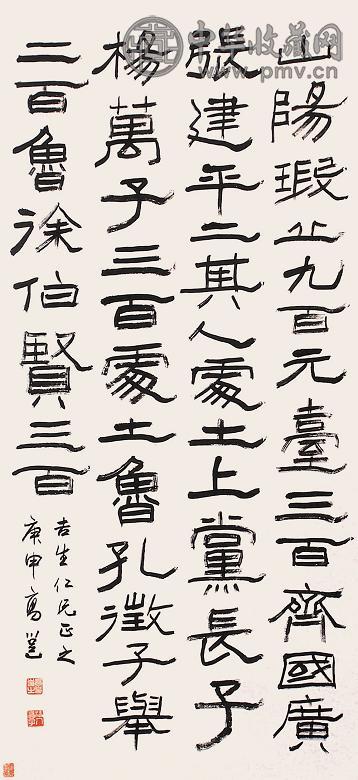 中华收藏网
www.pmv.cn
山陽瑕丘九百元臺三百齊國廣
張建平二其人處土上黨長子
楊萬子三百處土魯孔徵子舉
二百魯徐伯賢三百
吉生仁兄正之
庚申高邕